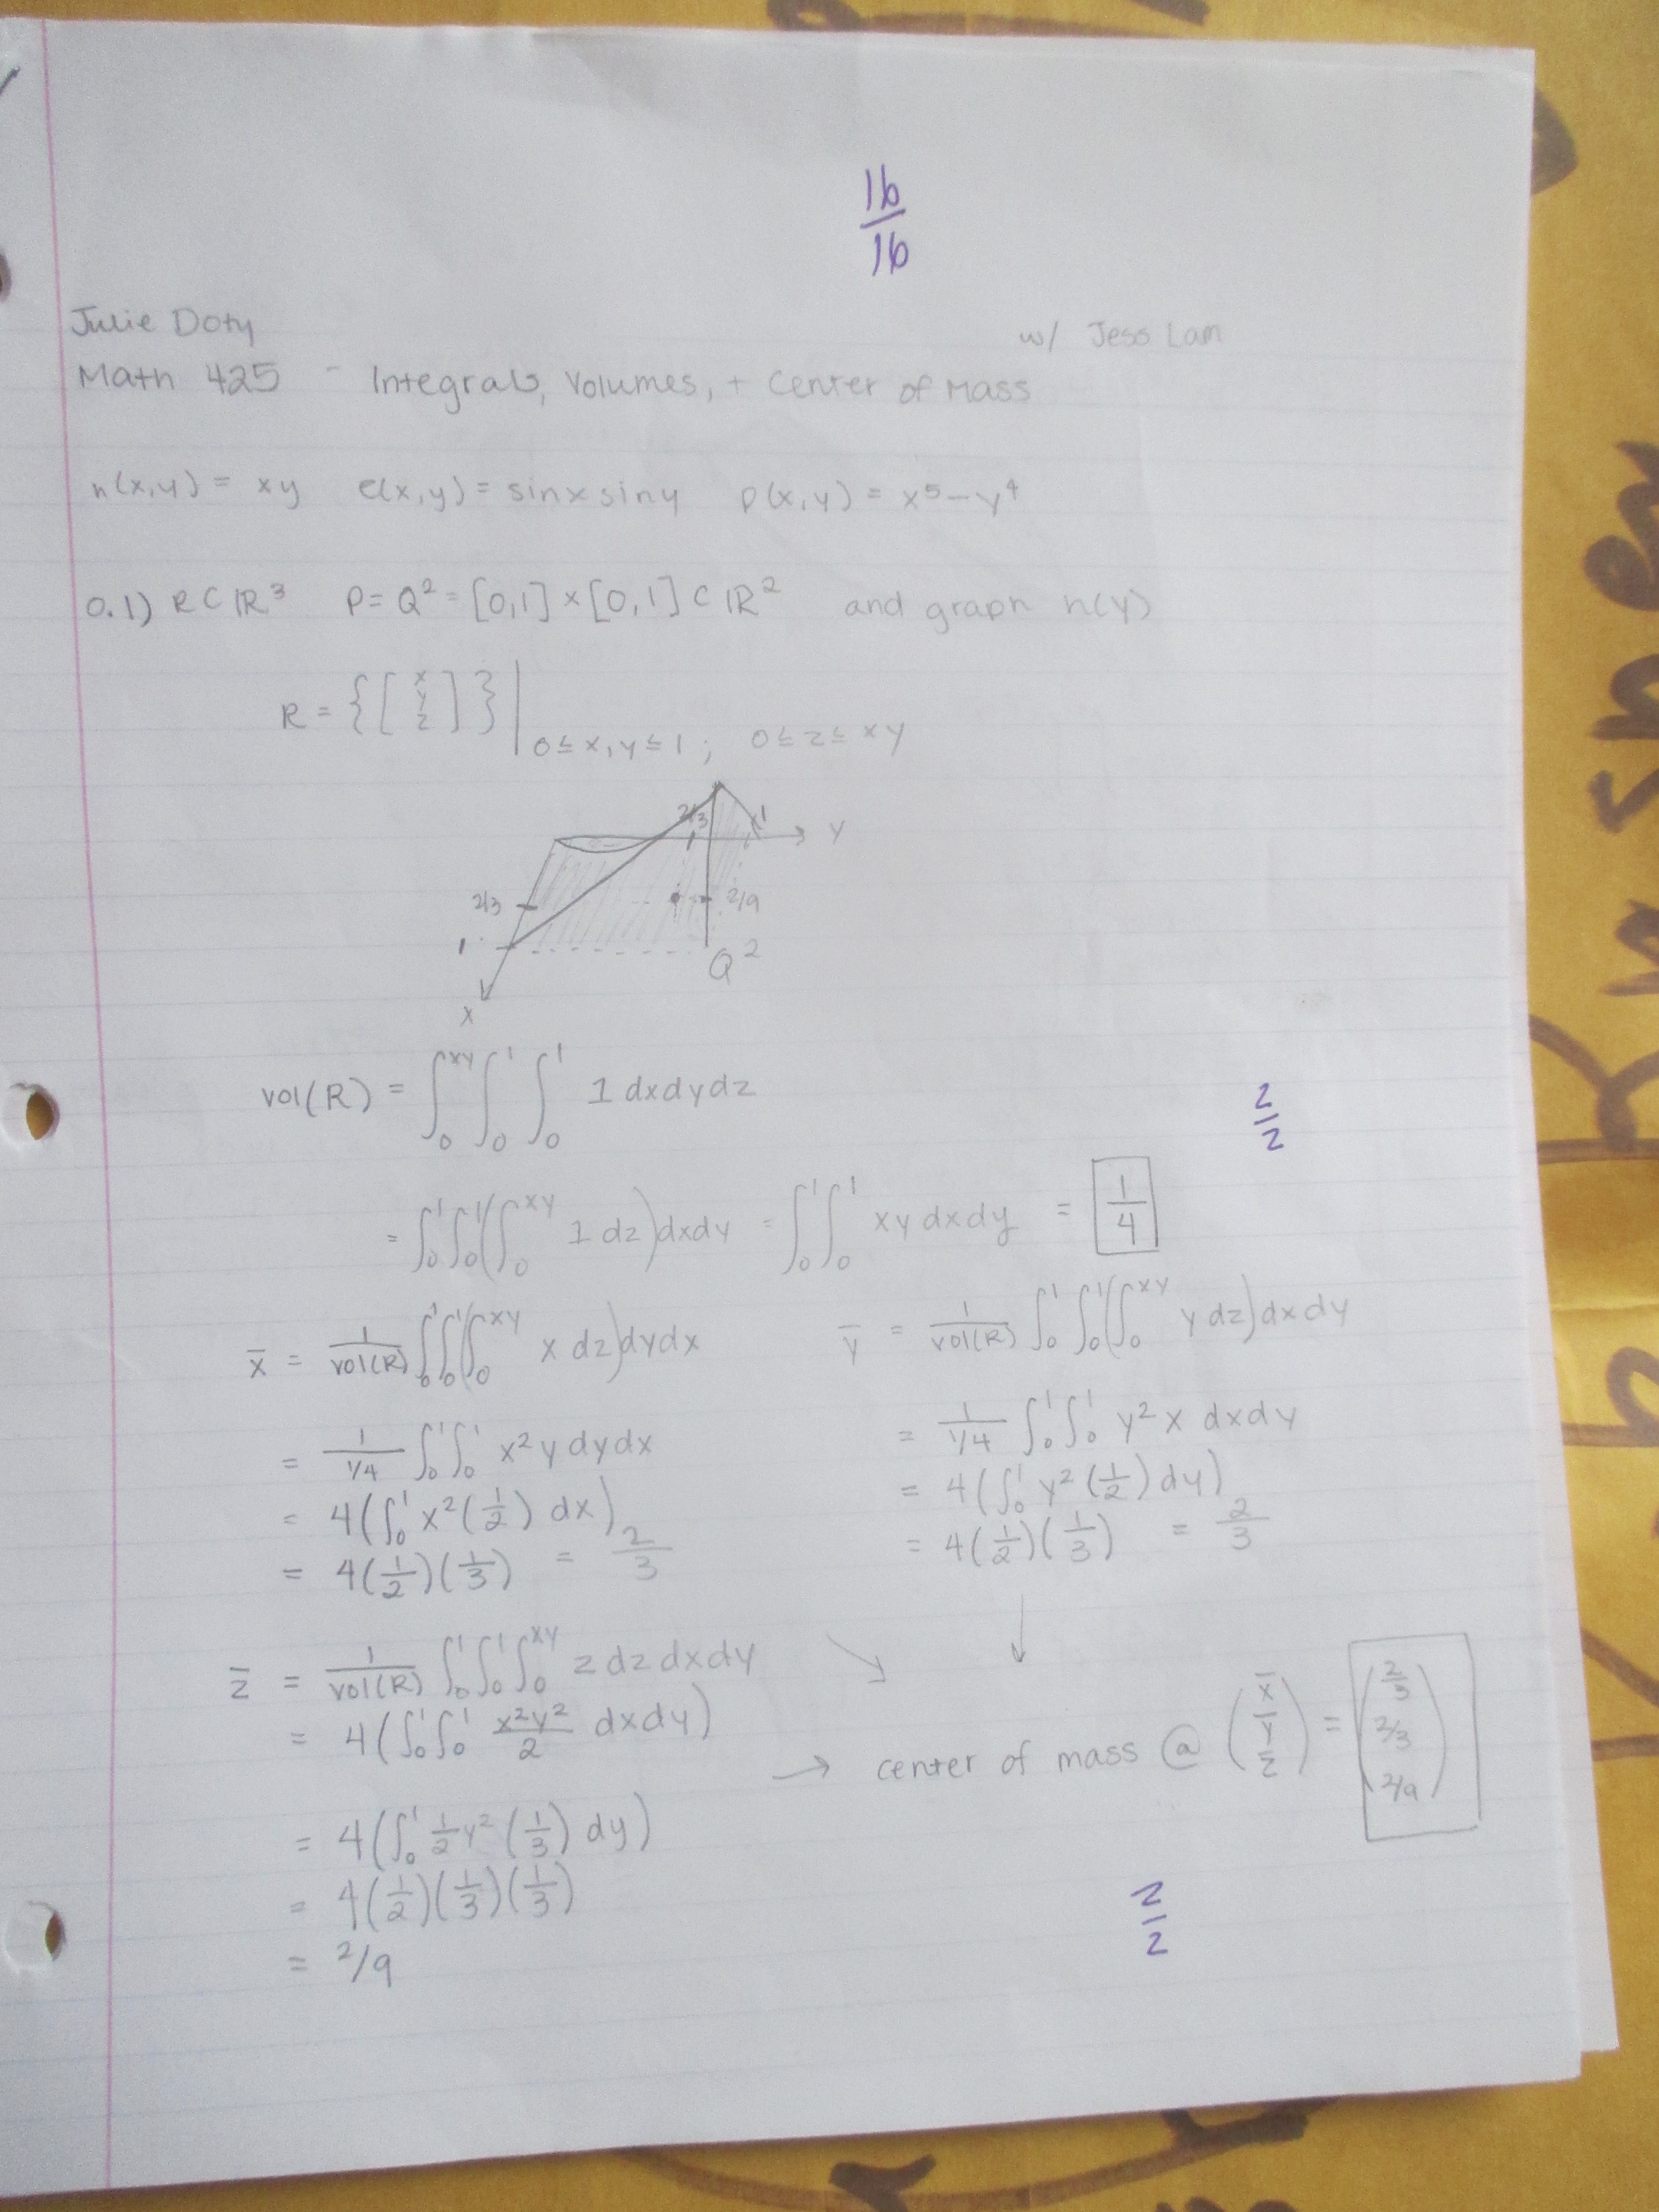 16/16
Julie Doty w/ Jess Lam
Math 425 - Integrals, Volumes, + Center of Mass
h(x,y) = xy e(x,y) = sinx siny p(x,y) = x⁵ - y⁴
0.1) R ⊂ ℝ³ P = Q² = [0,1] × [0,1] ⊂ ℝ² and graph h(y)
R = {[x y z]}| 0 ≤ x, y ≤ 1 ; 0 ≤ z ≤ xy
2/3 1 y
2/3 2/9
1 Q²
x
vol(R) = ∫₀^xy ∫₀¹ ∫₀¹ 1 dx dy dz
2/2
= ∫₀¹∫₀¹(∫₀^xy 1 dz)dxdy = ∫₀¹∫₀¹ xy dxdy = 1/4
x̄ = 1/vol(R) ∫₀¹∫₀¹(∫₀^xy x dz)dydx ȳ = 1/vol(R) ∫₀¹∫₀¹(∫₀^xy y dz)dxdy
= 1/1/4 ∫₀¹∫₀¹ x²y dydx = 1/1/4 ∫₀¹∫₀¹ y²x dxdy
= 4(∫₀¹ x²(1/2) dx) = 4(∫₀¹ y²(1/2) dy)
= 4(1/2)(1/3) = 2/3 = 4(1/2)(1/3) = 2/3
z̄ = 1/vol(R) ∫₀¹∫₀¹∫₀^xy z dz dxdy
= 4(∫₀¹∫₀¹ x²y²/2 dxdy)
→ center of mass @ (x̄ ȳ z̄) = (2/3 2/3 2/9)
= 4(∫₀¹ 1/2 y² (1/3) dy)
= 4(1/2)(1/3)(1/3)
= 2/9
2/2